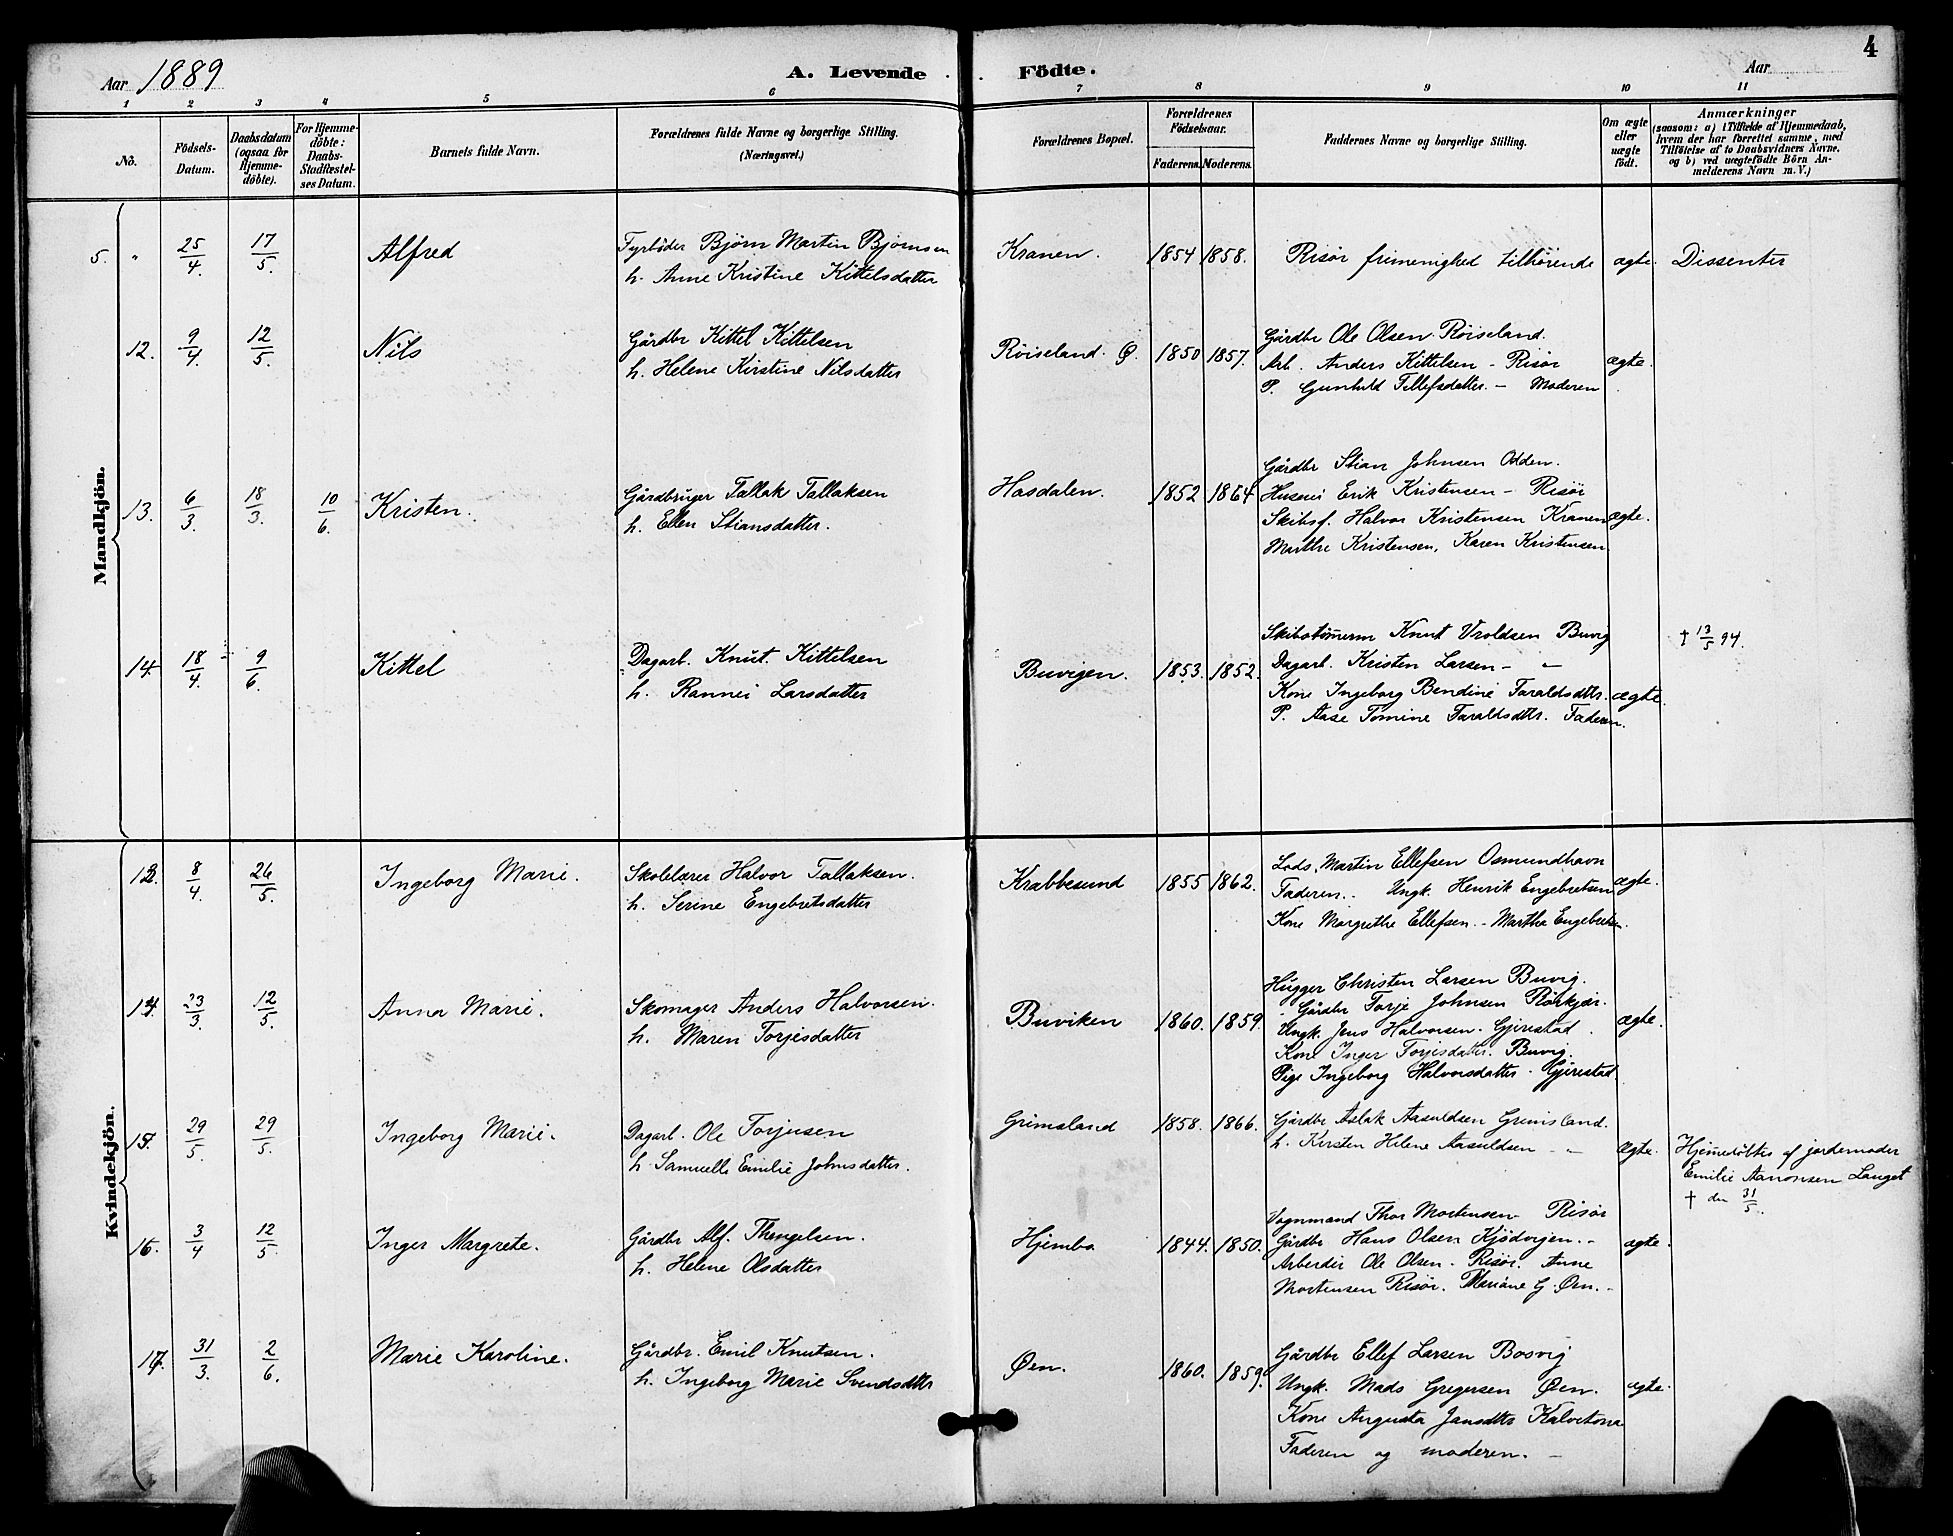 4
Aar 1889
A. Levende Födte.
Aar
1 2 3 4 5 6 7 8 9 10 11
No.
Födsels-Datum.
Daabsdatum (ogsaa for Hjemme-döbte).
For Hjemme-döbte: Daabs-Stadfæstel-ses Datum.
Barnets fulde Navn.
Forældrenes fulde Navne og borgerlige Stilling.
(Næringsvei.)
Forældrenes Bopæl.
Forældrenes Födselsaar.
Faderens. Moderens.
Faddernes Navne og borgerlige Stilling.
Om ægte eller uægte födt.
Anmærkninger
(saasom: a) i Tilfælde af Hjemmedaab,
hvem der har forrettet samme, med
Tilföielse af to Daabsvidners Navne,
og b) ved uægtefödte Börn An-
melderens Navn m. V.)
Mandkjön.
5. " 25/4. 17/5. Alfred
Fyrböder Bjørn Martin Bjørnsen
h. Anne Kristine Kittelsdatter
Kranen. 1854 1858.
Risør frimenighed tilhørende
ægte. Dissenter
12. 9/4 12/5. Nils
Gårdbr Kittel Kittelsen
h. Helene Kirstine Nilsdatter
Röiseland. 1850 1857.
Gårdbr Ole Olsen Röiseland.
Arb. Anders Kittelsen - Risør
P. Gunhild Tellefsdatter. - Moderen
ægte.
13. 6/3. 18/3. 10/6. Kristen.
Gårdbruger Tallak Tallaksen
h. Ellen Stiansdatter.
Hasdalen. 1852 1864
Gårdbr Stian Johnsen Odden.
Husmnd Erik Kristensen - Risør
Skibsf. Halvor Kristensen Kranen
Marthe Kristensen, Karen Kristensen
ægte.
14. 18/4. 9/6. Kittel
Dagarb. Knut Kittelsen
h. Rannei Larsdatter
Buvigen. 1853. 1852.
Skibstömerm Knut Vroldsen Buvig
Dagarb. Kristen Larsen - "
Kone Ingeborg Bendine Taraldsdtr.
P. Aase Tomine Taraldsdtr. Faderen.
ægte.
† 13/5 94.
Kvindekjön.
13. 8/4. 26/5. Ingeborg Marie.
Skolelærer Halvor Tallaksen.
h. Serine Engebretsdatter
Krabbesund 1855 1862.
Lods. Martin Ellefsen Osmundhavn
Faderen. - Ungk. Henrik Engebretsen
Kone Margrethe Ellefsen. - Martha Engebretsen.
ægte.
14. 23/3. 12/5. Anna Marie.
Skomager Anders Halvorsen.
h. Maren Torjesdatter
Buviken 1860. 1859.
Hugger Christen Larsen Buvig.
Gårdbr Torje Johnsen Rörkjær.
Ungk. Jens Halvorsen. Gjerestad.
Kone Inger Torjesdatter. Buvig.
Pige Ingeborg Halvorsdatter. Gjerestad
ægte.
15. 29/5. 29/5. Ingeborg Marie.
Dagarb. Ole Torjusen
h. Samuelle Emilie Johnsdatter.
Grimsland 1858. 1866.
Gårdbr Aslak Aasuldsen Grimsland.
h. Kirsten Helene Aasuldsen - "
Ægte.
Hjemedöbtes af jordemoder
Emilie Aanonsen Lauget
† den 31/5.
16. 3/4 12/5. Inger Margrete.
Gårdbr Alf. Thengelsen.
h. Helene Olsdatter
Hjembo 1844. 1850.
Vognmand Thor Mortensen - Risør
Gårdbr Hans Olsen Kjödvigen. -
Arbeider Ole Olsen - Risør. Anne
Mortensen Risør. Mariane G. Øen. -
ægte.
17. 31/3. 2/6. Marie Karoline.
Gårdbr. Emil Knutsen.
h. Ingeborg Marie Svendsdtr
Øen. 1860. 1859.
Gårdbr Ellef Larsen Bosvig
Ungk. Mads Gregersen Øen.
Kone Augusta Jansdtr
Faderen og moderen. -
ægte.